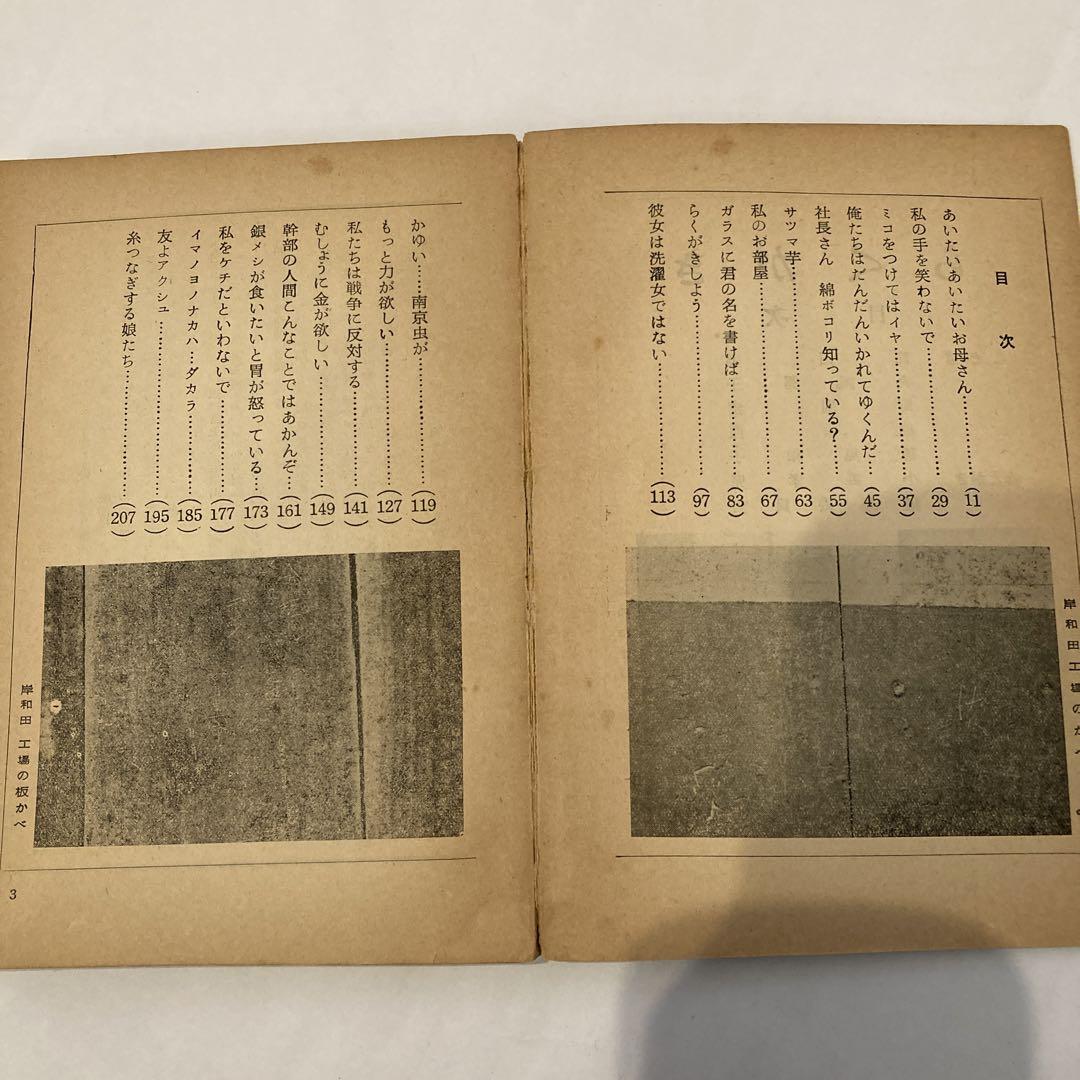 目次
あいたいあいたいお母さん…………(11)
私の手を笑わないで…………(29)
ミコをつけてはイヤ…………(37)
俺たちはだんだんいかれてゆくんだ…(45)
社長さん 綿ボコリ知っている？……(55)
サツマ芋…………(63)
私のお部屋…………(67)
ガラスに君の名を書けば…………(83)
らくがきしよう…………(97)
彼女は洗濯女ではない…………(113)
岸和田工場のかべ
かゆい……南京虫が…………(119)
もっと力が欲しい…………(127)
私たちは戦争に反対する…………(141)
むしょうに金が欲しい…………(149)
幹部の人間こんなことではあかんぞ…(161)
銀メシが食いたいと胃が怒っている…(173)
私をケチだといわないで…………(177)
イマノヨノナカハ…ダカラ…………(185)
友よアクシュ…………(195)
糸つなぎする娘たち…………(207)
岸和田 工場の板かべ
3